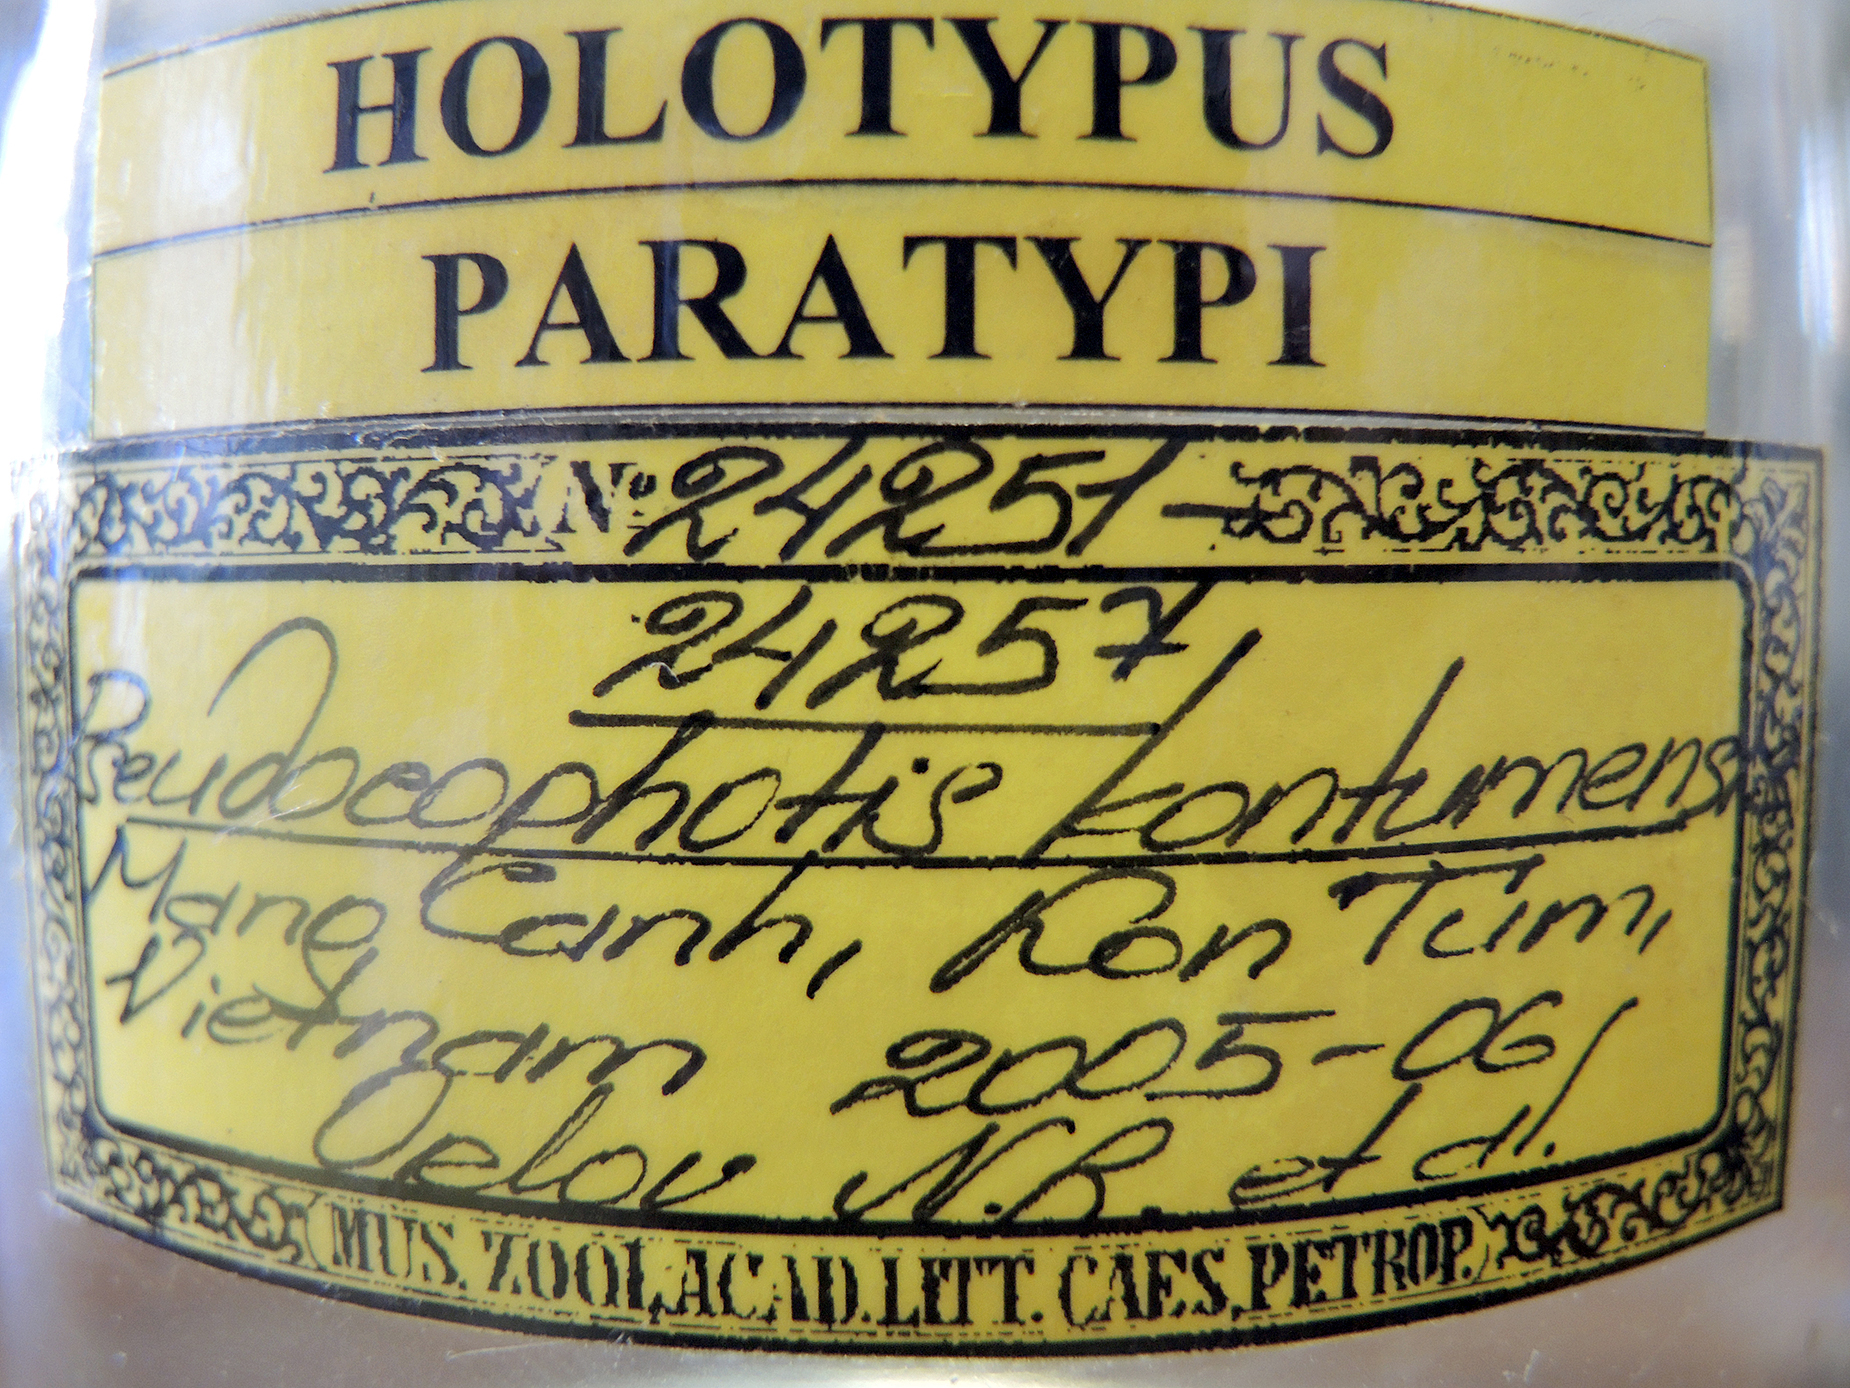 HOLOTYPUS
PARATYPI
№ 24251-
24257
Pseudocophotis kontumens
Mang Canh, Kon Tum,
Vietnam 2005-06
Orlov N.L. et al.
MUS. ZOOL. ACAD. LITT. CAES. PETROP.